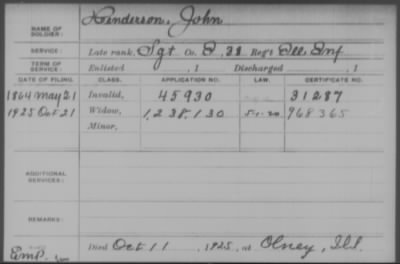 NAME OF SOLDIER: Henderson, John
SERVICE: Late rank, Sgt Co. D, 38 Reg't Ill Inf
TERM OF SERVICE: Enlisted , 1 Discharged , 1
DATE OF FILING. CLASS. APPLICATION NO. LAW. CERTIFICATE NO.
1864 May 21 Invalid, 45930 31287
1925 Oct 21 Widow, 1,238,130 5-1-20 968365
Minor,
ADDITIONAL SERVICES:
REMARKS:
Died Oct 11, 1925, at Olney, Ill.